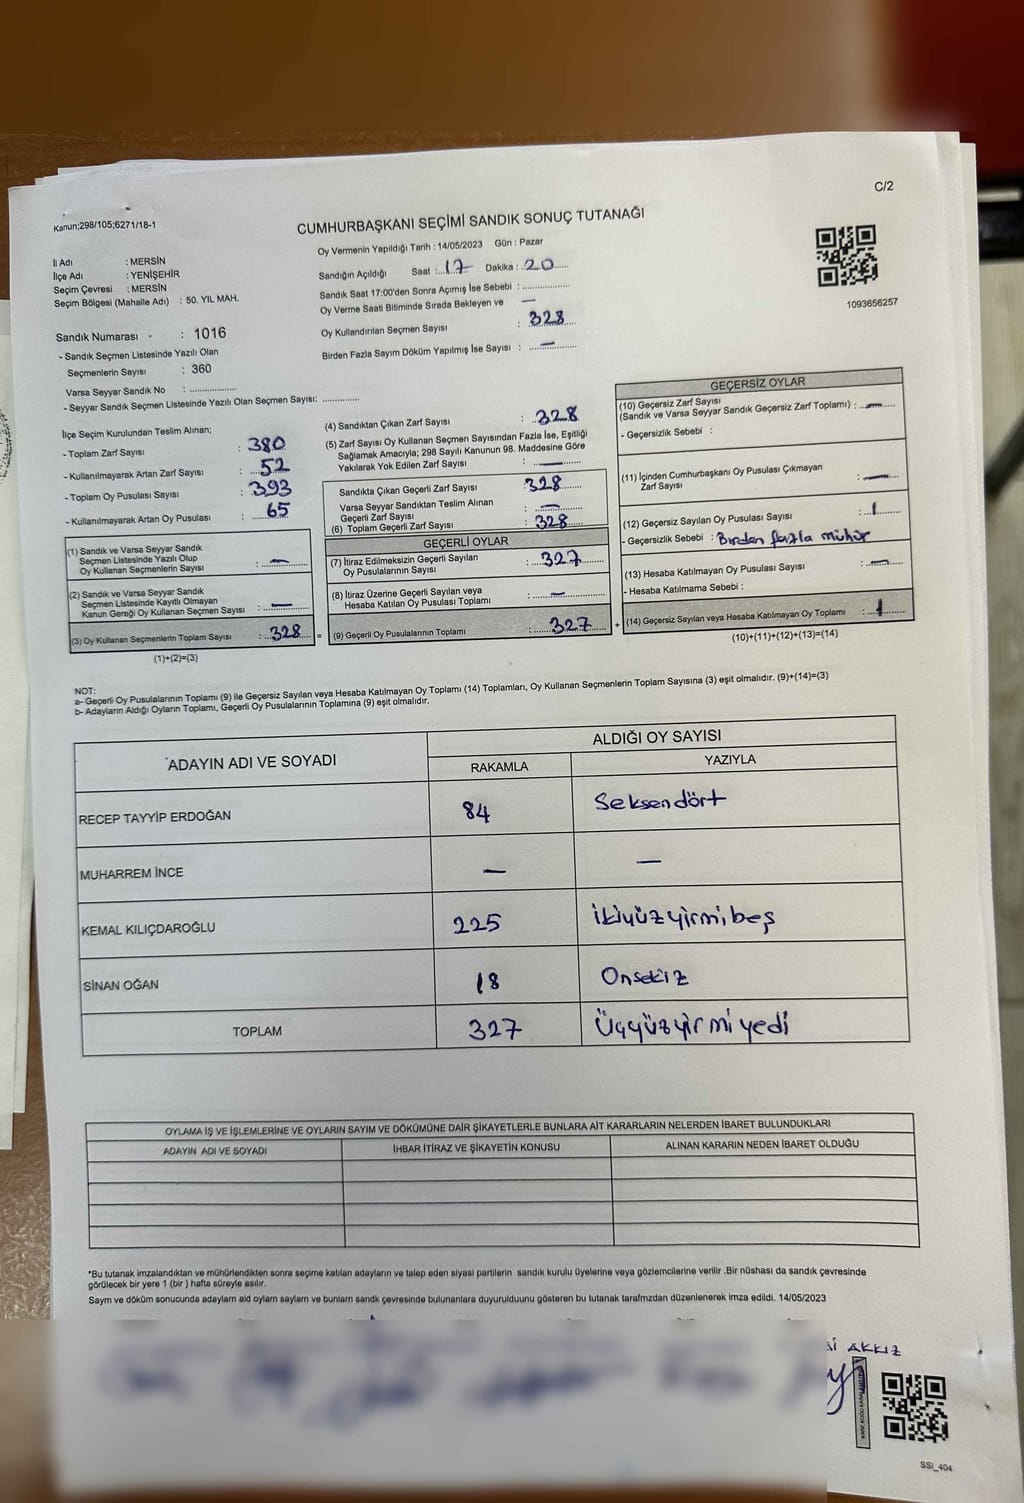 C/2
Kanun;298/105;6271/18-1
CUMHURBAŞKANI SEÇİMİ SANDIK SONUÇ TUTANAĞI
Oy Vermenin Yapıldığı Tarih : 14/05/2023 Gün : Pazar
İl Adı : MERSİN
İlçe Adı : YENİŞEHİR
Seçim Çevresi : MERSİN
Seçim Bölgesi (Mahalle Adı) : 50. YIL MAH.
Sandığın Açıldığı Saat : 17 Dakika : 20
Sandık Saat 17:00'den Sonra Açımış İse Sebebi :
Oy Verme Saati Bitiminde Sırada Bekleyen ve —
Oy Kullandırılan Seçmen Sayısı : 328
Birden Fazla Sayım Döküm Yapılmış İse Sayısı : —
1093656257
Sandık Numarası : 1016
- Sandık Seçmen Listesinde Yazılı Olan
Seçmenlerin Sayısı : 360
Varsa Seyyar Sandık No :
- Seyyar Sandık Seçmen Listesinde Yazılı Olan Seçmen Sayısı:
İlçe Seçim Kurulundan Teslim Alınan;
- Toplam Zarf Sayısı : 380
- Kullanılmayarak Artan Zarf Sayısı : 52
- Toplam Oy Pusulası Sayısı : 393
- Kullanılmayarak Artan Oy Pusulası : 65
(1) Sandık ve Varsa Seyyar Sandık
Seçmen Listesinde Yazılı Olup
Oy Kullanan Seçmenlerin Sayısı : —
(2) Sandık ve Varsa Seyyar Sandık
Seçmen Listesinde Kayıtlı Olmayan
Kanun Gereği Oy Kullanan Seçmen Sayısı : —
(3) Oy Kullanan Seçmenlerin Toplam Sayısı : 328 =
(1)+(2)=(3)
(4) Sandıktan Çıkan Zarf Sayısı : 328
(5) Zarf Sayısı Oy Kullanan Seçmen Sayısından Fazla İse, Eşitliği
Sağlamak Amacıyla; 298 Sayılı Kanunun 98. Maddesine Göre
Yakılarak Yok Edilen Zarf Sayısı : —
Sandıkta Çıkan Geçerli Zarf Sayısı : 328
Varsa Seyyar Sandıktan Teslim Alınan
Geçerli Zarf Sayısı : —
(6) Toplam Geçerli Zarf Sayısı : 328
GEÇERLİ OYLAR
(7) İtiraz Edilmeksizin Geçerli Sayılan
Oy Pusulalarının Sayısı : 327
(8) İtiraz Üzerine Geçerli Sayılan veya
Hesaba Katılan Oy Pusulası Toplamı : —
(9) Geçerli Oy Pusulalarının Toplamı : 327 +
GEÇERSİZ OYLAR
(10) Geçersiz Zarf Sayısı
(Sandık ve Varsa Seyyar Sandık Geçersiz Zarf Toplamı) : —
- Geçersizlik Sebebi :
(11) İçinden Cumhurbaşkanı Oy Pusulası Çıkmayan
Zarf Sayısı : —
(12) Geçersiz Sayılan Oy Pusulası Sayısı : 1
- Geçersizlik Sebebi : Birden fazla mühür
(13) Hesaba Katılmayan Oy Pusulası Sayısı : —
- Hesaba Katılmama Sebebi :
(14) Geçersiz Sayılan veya Hesaba Katılmayan Oy Toplamı : 1
(10)+(11)+(12)+(13)=(14)
NOT:
a- Geçerli Oy Pusulalarının Toplamı (9) ile Geçersiz Sayılan veya Hesaba Katılmayan Oy Toplamı (14) Toplamları, Oy Kullanan Seçmenlerin Toplam Sayısına (3) eşit olmalıdır. (9)+(14)=(3)
b- Adayların Aldığı Oyların Toplamı, Geçerli Oy Pusulalarının Toplamına (9) eşit olmalıdır.
ADAYIN ADI VE SOYADI
ALDIĞI OY SAYISI
RAKAMLA YAZIYLA
RECEP TAYYİP ERDOĞAN 84 Seksendört
MUHARREM İNCE — —
KEMAL KILIÇDAROĞLU 225 İkiyüzyirmibeş
SİNAN OĞAN 18 Onsekiz
TOPLAM 327 Üçyüzyirmiyedi
OYLAMA İŞ VE İŞLEMLERİNE VE OYLARIN SAYIM VE DÖKÜMÜNE DAİR ŞİKAYETLERLE BUNLARA AİT KARARLARIN NELERDEN İBARET BULUNDUKLARI
ADAYIN ADI VE SOYADI İHBAR İTİRAZ VE ŞİKAYETİN KONUSU ALINAN KARARIN NEDEN İBARET OLDUĞU
*Bu tutanak imzalandıktan ve mühürlendikten sonra seçime katılan adayların ve talep eden siyasi partilerin sandık kurulu üyelerine veya gözlemcilerine verilir .Bir nüshası da sandık çevresinde
görülecek bir yere 1 (bir ) hafta süreyle asılır.
Saym ve döküm sonucunda adaylam ald oylam saylam ve bunlam sandk çevresinde bulunanlara duyurulduunu gösteren bu tutanak tarafmzdan düzenlenerek imza edildi. 14/05/2023
AKKIZ
SSI_404